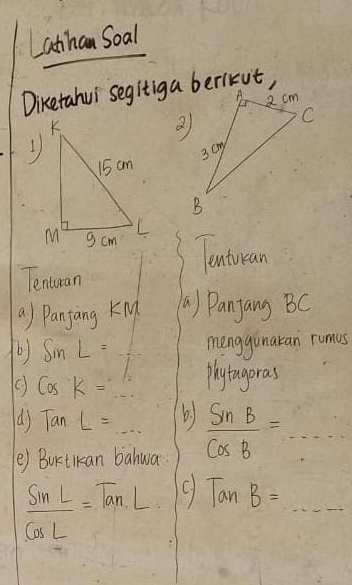 Latihan Soal
Diketahui segitiga berikut,
1)
K
15 cm
M
9 cm
L
Tentukan
a) Panjang KM
b) Sin L = ....
c) Cos K = ....
d) Tan L = ....
e) Buktikan bahwa
Sin L / Cos L = Tan L.
2)
A
2 cm
C
3 cm
B
Tentukan
a) Panjang BC
menggunakan rumus
phytagoras
b) Sin B / Cos B = ....
c) Tan B = ....